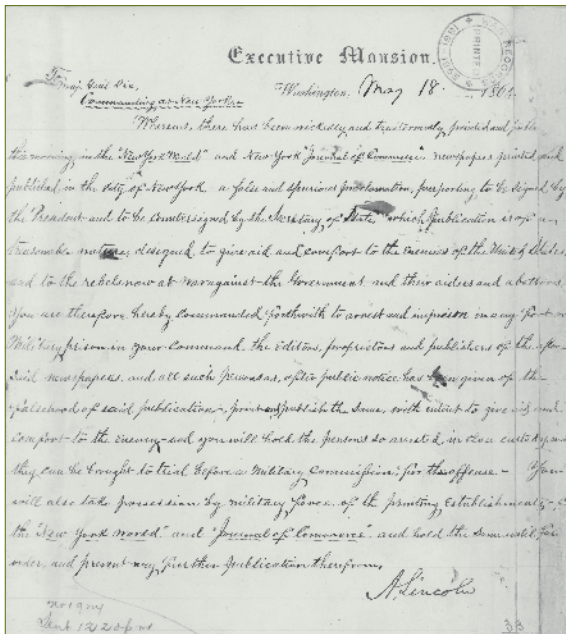 Executive Mansion.
Washington, May 18, 1864
To Maj. Genl Dix,
Commanding at New York.
Whereas, there has been wickedly and traitorously printed and publis
this morning in the "New York World" and New York "Journal of Commerce" newspapers printed and
published in the city of New York a false and spurious proclamation, purporting to be signed by
the President and to be countersigned by the Secretary of State, which publication is of a
treasonable nature designed to give aid and comfort to the enemies of the United States,
and to the rebels now at war against the Government and their aiders and abettors:
You are therefore hereby commanded forthwith to arrest and imprison in any fort or
Military prison in your command the editors, proprietors and publishers of the afore-
said newspapers, and all such persons as, after public notice has been given of the
falsehood of said publication, print and publish the same, with intent to give aid and
comfort to the enemy and you will hold the persons so arrested in close custody until
they can be brought to trial before a Military Commission, for the offense. You
will also take possession by military force, of the printing establishments of
the "New York World" and "Journal of Commerce" and hold the same until further
order, and prevent any further publication therefrom.
A. Lincoln
Sent 12 20 pm
33